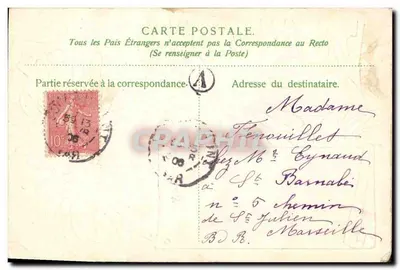 CARTE POSTALE.
Tous les Pais Étrangers n'acceptent pas la Correspondance au Recto
(Se renseigner à la Poste)
Partie réservée à la correspondance
A
Adresse du destinataire.
Madame
Fenouillet
chez Mr Eynaud
à St Barnabé
n° 5 chemin
de St Julien
B d R. Marseille
10